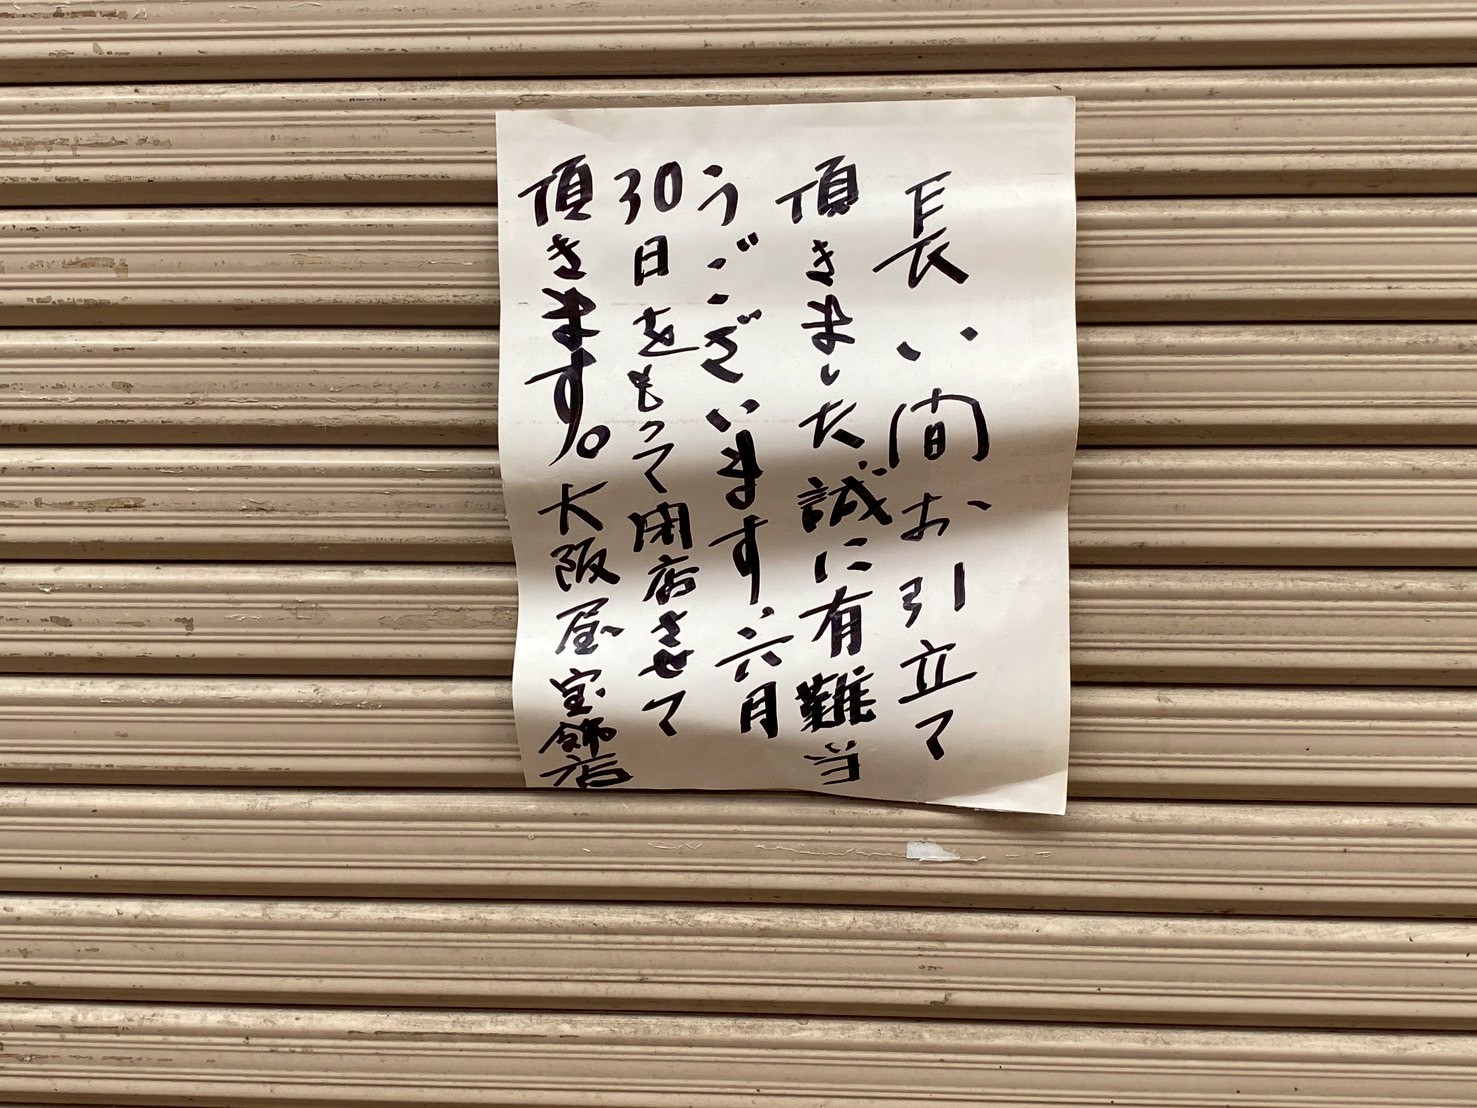 長い間お引立て
頂きました誠に有難当
うございます、六月
30日をもって閉店させて
頂きます。大阪屋宝飾店